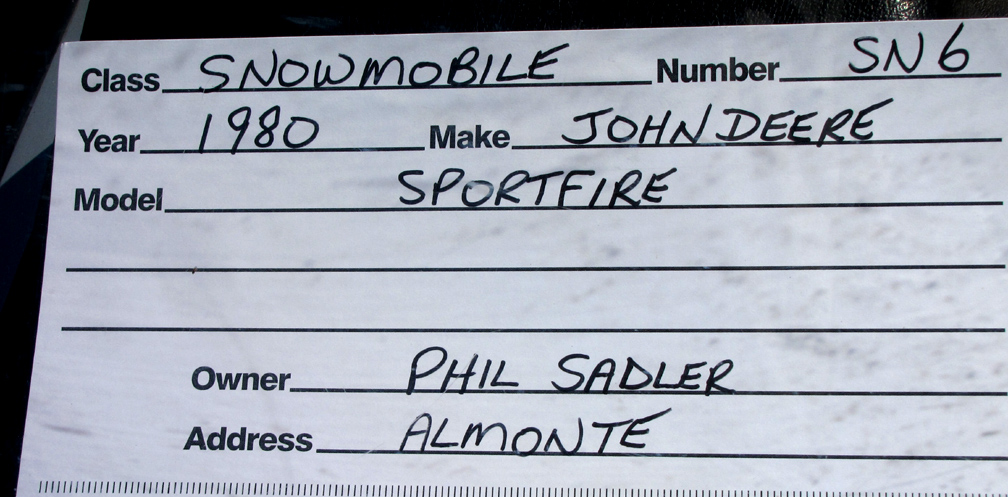 Class SNOWMOBILE Number SN6
Year 1980 Make JOHN DEERE
Model SPORTFIRE
Owner PHIL SADLER
Address ALMONTE